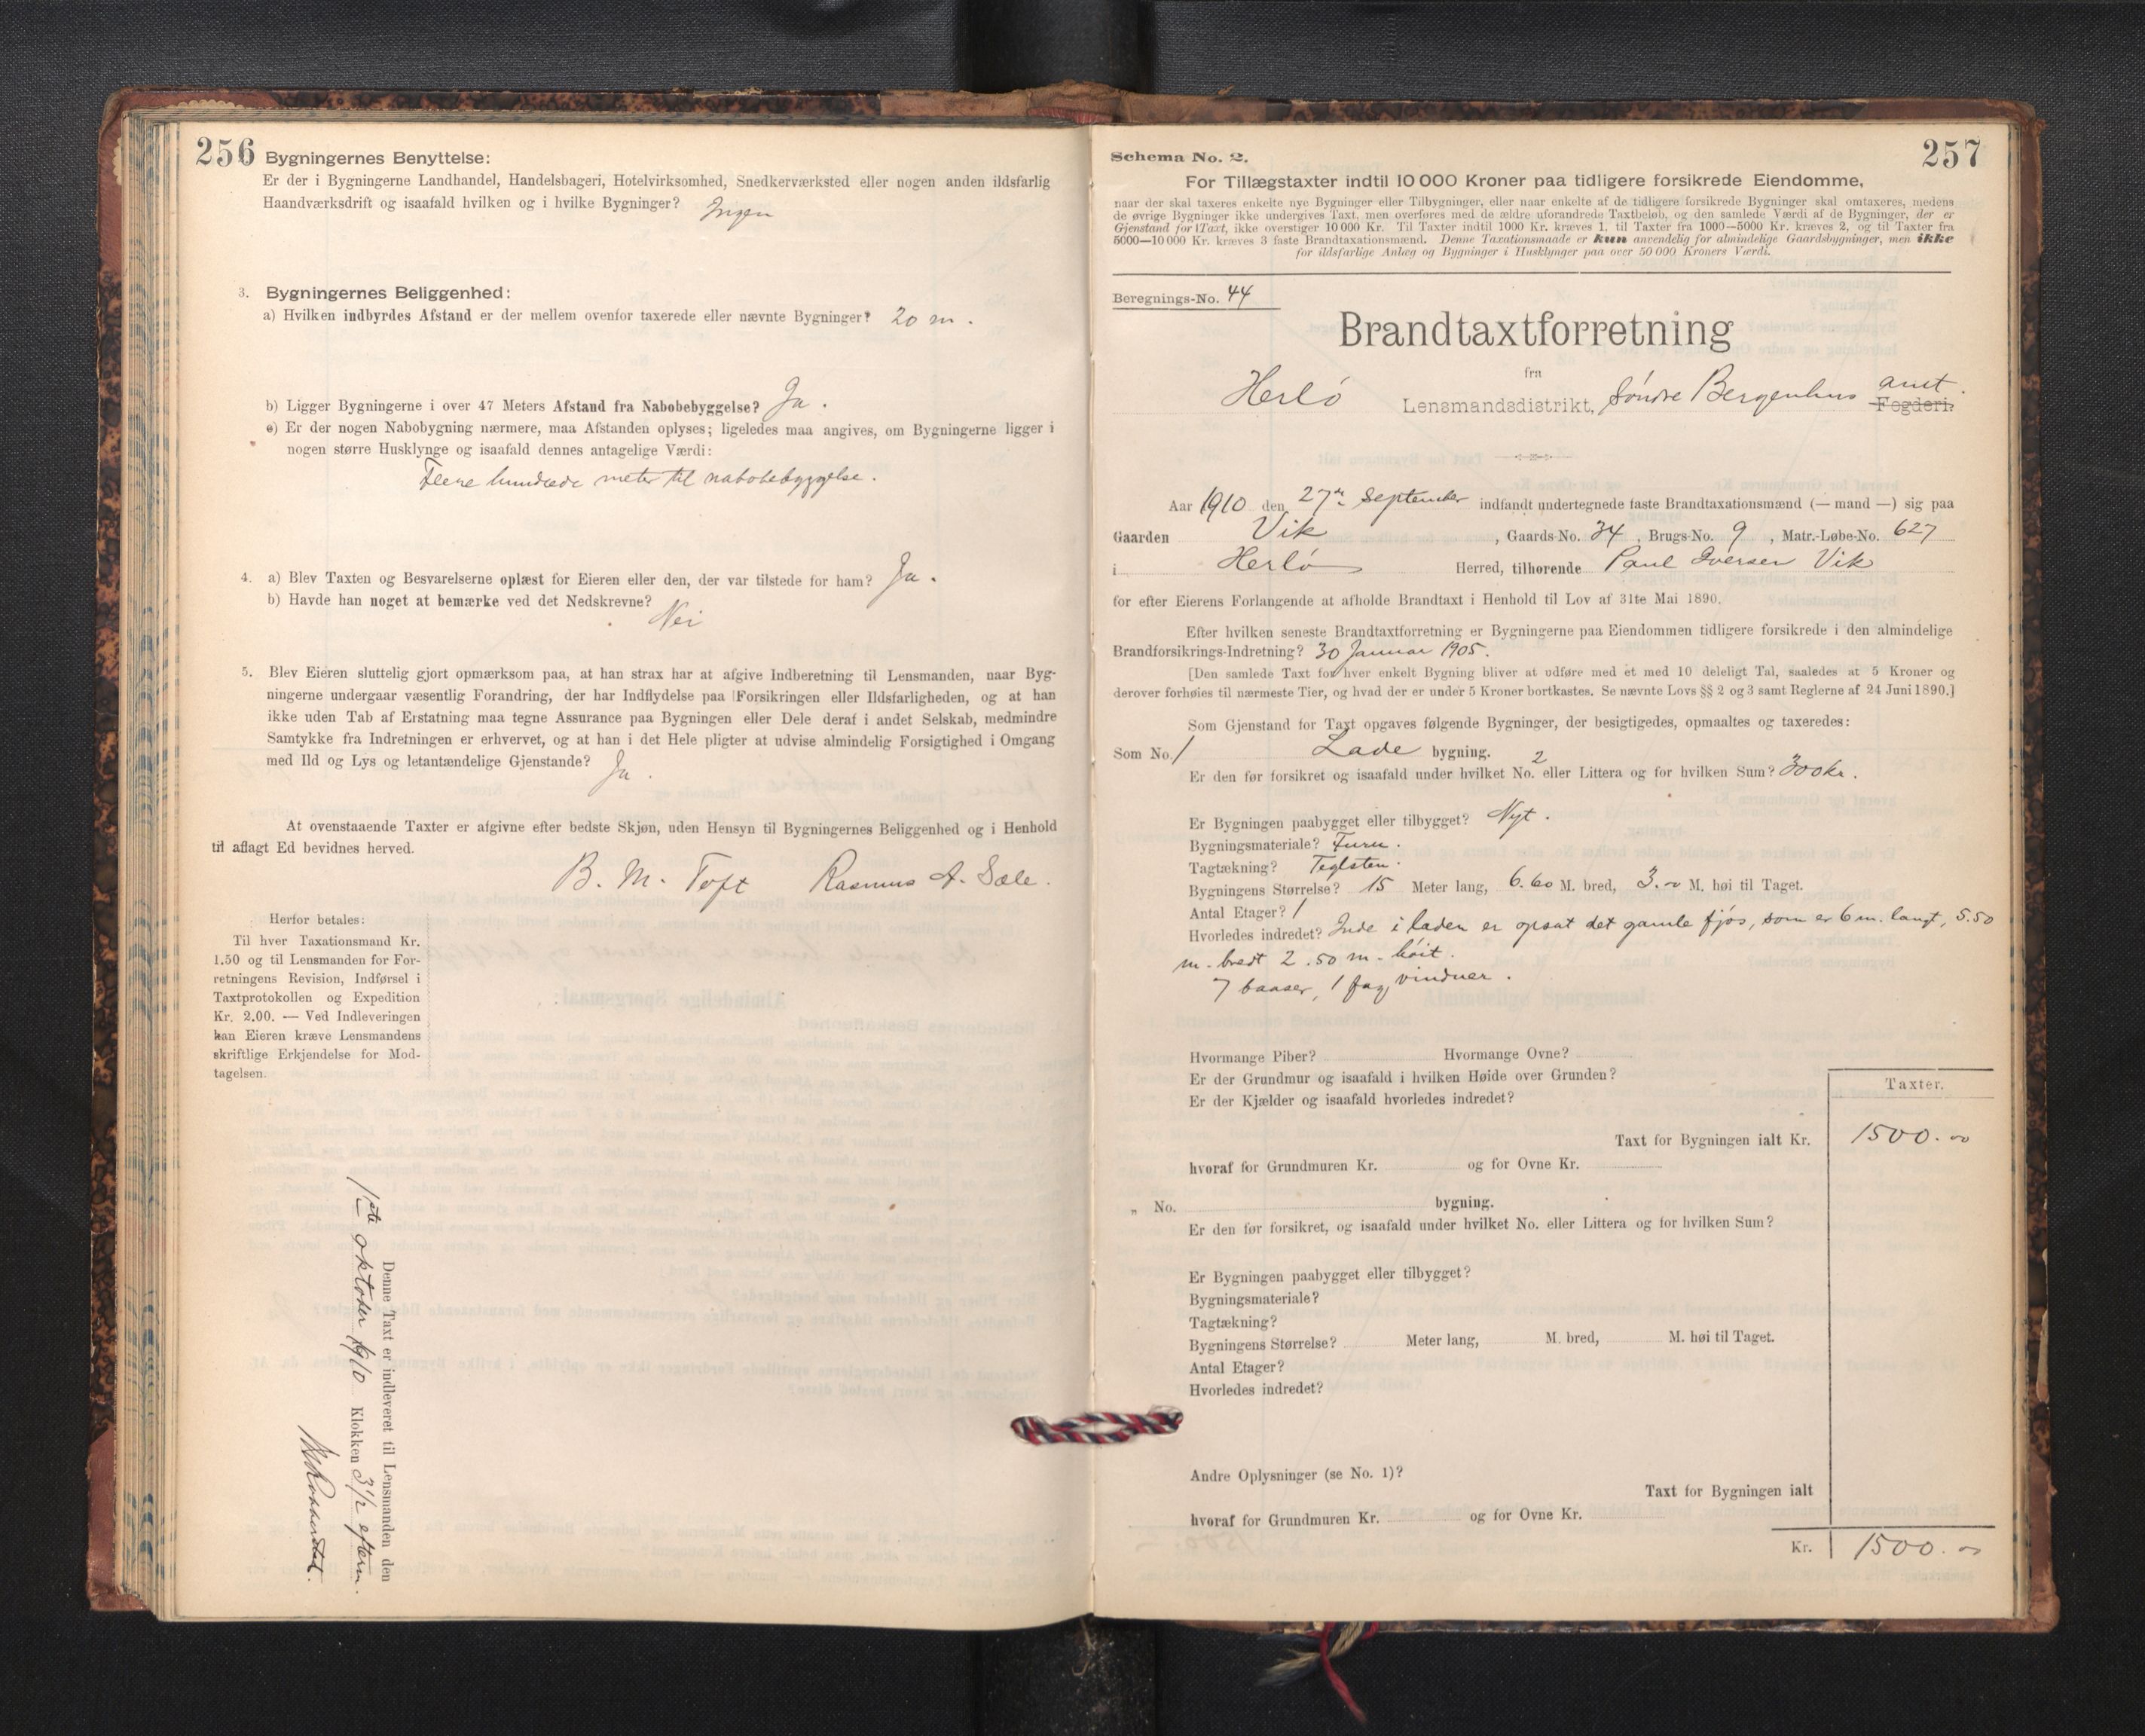 256
Bygningernes Benyttelse:
Er der i Bygningerne Landhandel, Handelsbageri, Hotelvirksomhed, Snedkerværksted eller nogen anden ildsfarlig
Haandværksdrift og isaafald hvilken og i hvilke Bygninger? Ingen
3. Bygningernes Beliggenhed:
a) Hvilken indbyrdes Afstand er der mellem ovenfor taxerede eller nævnte Bygninger? 20 m.
b) Ligger Bygningerne i over 47 Meters Afstand fra Nabobebyggelse? Ja.
c) Er der nogen Nabobygning nærmere, maa Afstanden oplyses; ligeledes maa angives, om Bygningerne ligger i
nogen større Husklynge og isaafald dennes antagelige Værdi:
Flere hundrede meter til nabobebyggelse.
4. a) Blev Taxten og Besvarelserne oplæst for Eieren eller den, der var tilstede for ham? Ja.
b) Havde han noget at bemærke ved det Nedskrevne?
Nei
5. Blev Eieren sluttelig gjort opmærksom paa, at han strax har at afgive Indberetning til Lensmanden, naar Byg-
ningerne undergaar væsentlig Forandring, der har Indflydelse paa Forsikringen eller Ildsfarligheden, og at han
ikke uden Tab af Erstatning maa tegne Assurance paa Bygningen eller Dele deraf i andet Selskab, medmindre
Samtykke fra Indretningen er erhvervet, og at han i det Hele pligter at udvise almindelig Forsigtighed i Omgang
med Ild og Lys og letantændelige Gjenstande? Ja.
At ovenstaaende Taxter er afgivne efter bedste Skjøn, uden Hensyn til Bygningernes Beliggenhed og i Henhold
til aflagt Ed bevidnes herved.
B. M. Toft Rasmus A. Sæle.
Herfor betales:
Til hver Taxationsmand Kr.
1.50 og til Lensmanden for For-
retningens Revision, Indførsel i
Taxtprotokollen og Expedition
Kr. 2.00. — Ved Indleveringen
kan Eieren kræve Lensmandens
skriftlige Erkjendelse for Mod-
tagelsen.
Denne Taxt er indleveret til Lensmanden den
1ste oktober 1910 Klokken 3 1/2 efterm.
257
Schema No. 2.
For Tillægstaxter indtil 10 000 Kroner paa tidligere forsikrede Eiendomme,
naar der skal taxeres enkelte nye Bygninger eller Tilbygninger, eller naar enkelte af de tidligere forsikrede Bygninger skal omtaxeres, medens
de øvrige Bygninger ikke undergives Taxt, men overføres med de ældre uforandrede Taxtbeløb, og den samlede Værdi af de Bygninger, der er
Gjenstand for Taxt, ikke overstiger 10 000 Kr. Til Taxter indtil 1000 Kr. kræves 1, til Taxter fra 1000—5000 Kr. kræves 2, og til Taxter fra
5000—10 000 Kr. kræves 3 faste Brandtaxationsmænd. Denne Taxationsmaade er kun anvendelig for almindelige Gaardsbygninger, men ikke
for ildsfarlige Anlæg og Bygninger i Husklynger paa over 50 000 Kroners Værdi.
Beregnings-No. 44
Brandtaxtforretning
fra
Herlø Lensmandsdistrikt, Søndre Bergenhus amt. Fogderi.
Aar 1910 den 27de September indfandt undertegnede faste Brandtaxationsmænd (— mand —) sig paa
Gaarden Vik, Gaards-No. 34, Brugs-No. 9, Matr.-Løbe-No. 627
i Herlø Herred, tilhørende Paul Iversen Vik
for efter Eierens Forlangende at afholde Brandtaxt i Henhold til Lov af 31te Mai 1890.
Efter hvilken seneste Brandtaxtforretning er Bygningerne paa Eiendommen tidligere forsikrede i den almindelige
Brandforsikrings-Indretning? 30 Januar 1905.
[Den samlede Taxt for hver enkelt Bygning bliver at udføre med et med 10 deleligt Tal, saaledes at 5 Kroner og
derover forhøies til nærmeste Tier, og hvad der er under 5 Kroner bortkastes. Se nævnte Lovs §§ 2 og 3 samt Reglerne af 24 Juni 1890.]
Som Gjenstand for Taxt opgaves følgende Bygninger, der besigtigedes, opmaaltes og taxeredes:
Som No. 1 Lade bygning.
Er den før forsikret og isaafald under hvilket No. 2 eller Littera og for hvilken Sum? 300 kr.
Er Bygningen paabygget eller tilbygget? Nyt.
Bygningsmateriale? Furu.
Tagtækning? Teglsten.
Bygningens Størrelse? 15 Meter lang, 6.60 M. bred, 3.00 M. høi til Taget.
Antal Etager? 1
Hvorledes indredet? Inde i laden er opsat det gamle fjøs, som er 6 m. langt, 5.50
m. bredt 2.50 m. høit.
7 baaser, 1 fag vinduer.
Hvormange Piber? Hvormange Ovne?
Er der Grundmur og isaafald i hvilken Høide over Grunden?
Er der Kjælder og isaafald hvorledes indredet?
Taxter.
Taxt for Bygningen ialt Kr. 1500.00
hvoraf for Grundmuren Kr. og for Ovne Kr.
„ No. bygning.
Er den før forsikret, og isaafald under hvilket No. eller Littera og for hvilken Sum?
Er Bygningen paabygget eller tilbygget?
Bygningsmateriale?
Tagtækning?
Bygningens Størrelse? Meter lang, M. bred, M. høi til Taget.
Antal Etager?
Hvorledes indredet?
Andre Oplysninger (se No. 1)?
Taxt for Bygningen ialt
hvoraf for Grundmuren Kr. og for Ovne Kr.
Kr. 1500.00